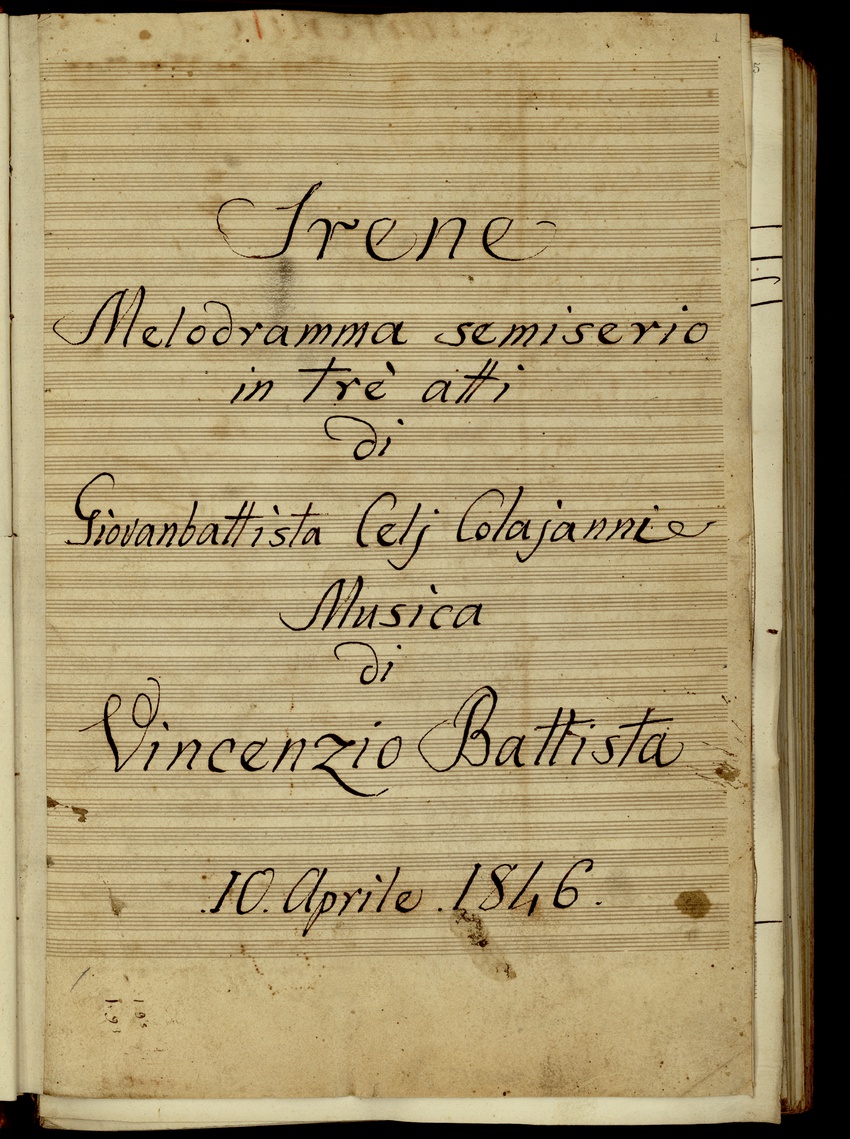 1
5
Irene
Melodramma semiserio
in trè atti
di
Giovanbattista Celj Colajanni
Musica
di
Vincenzio Battista
.10. Aprile .1846.